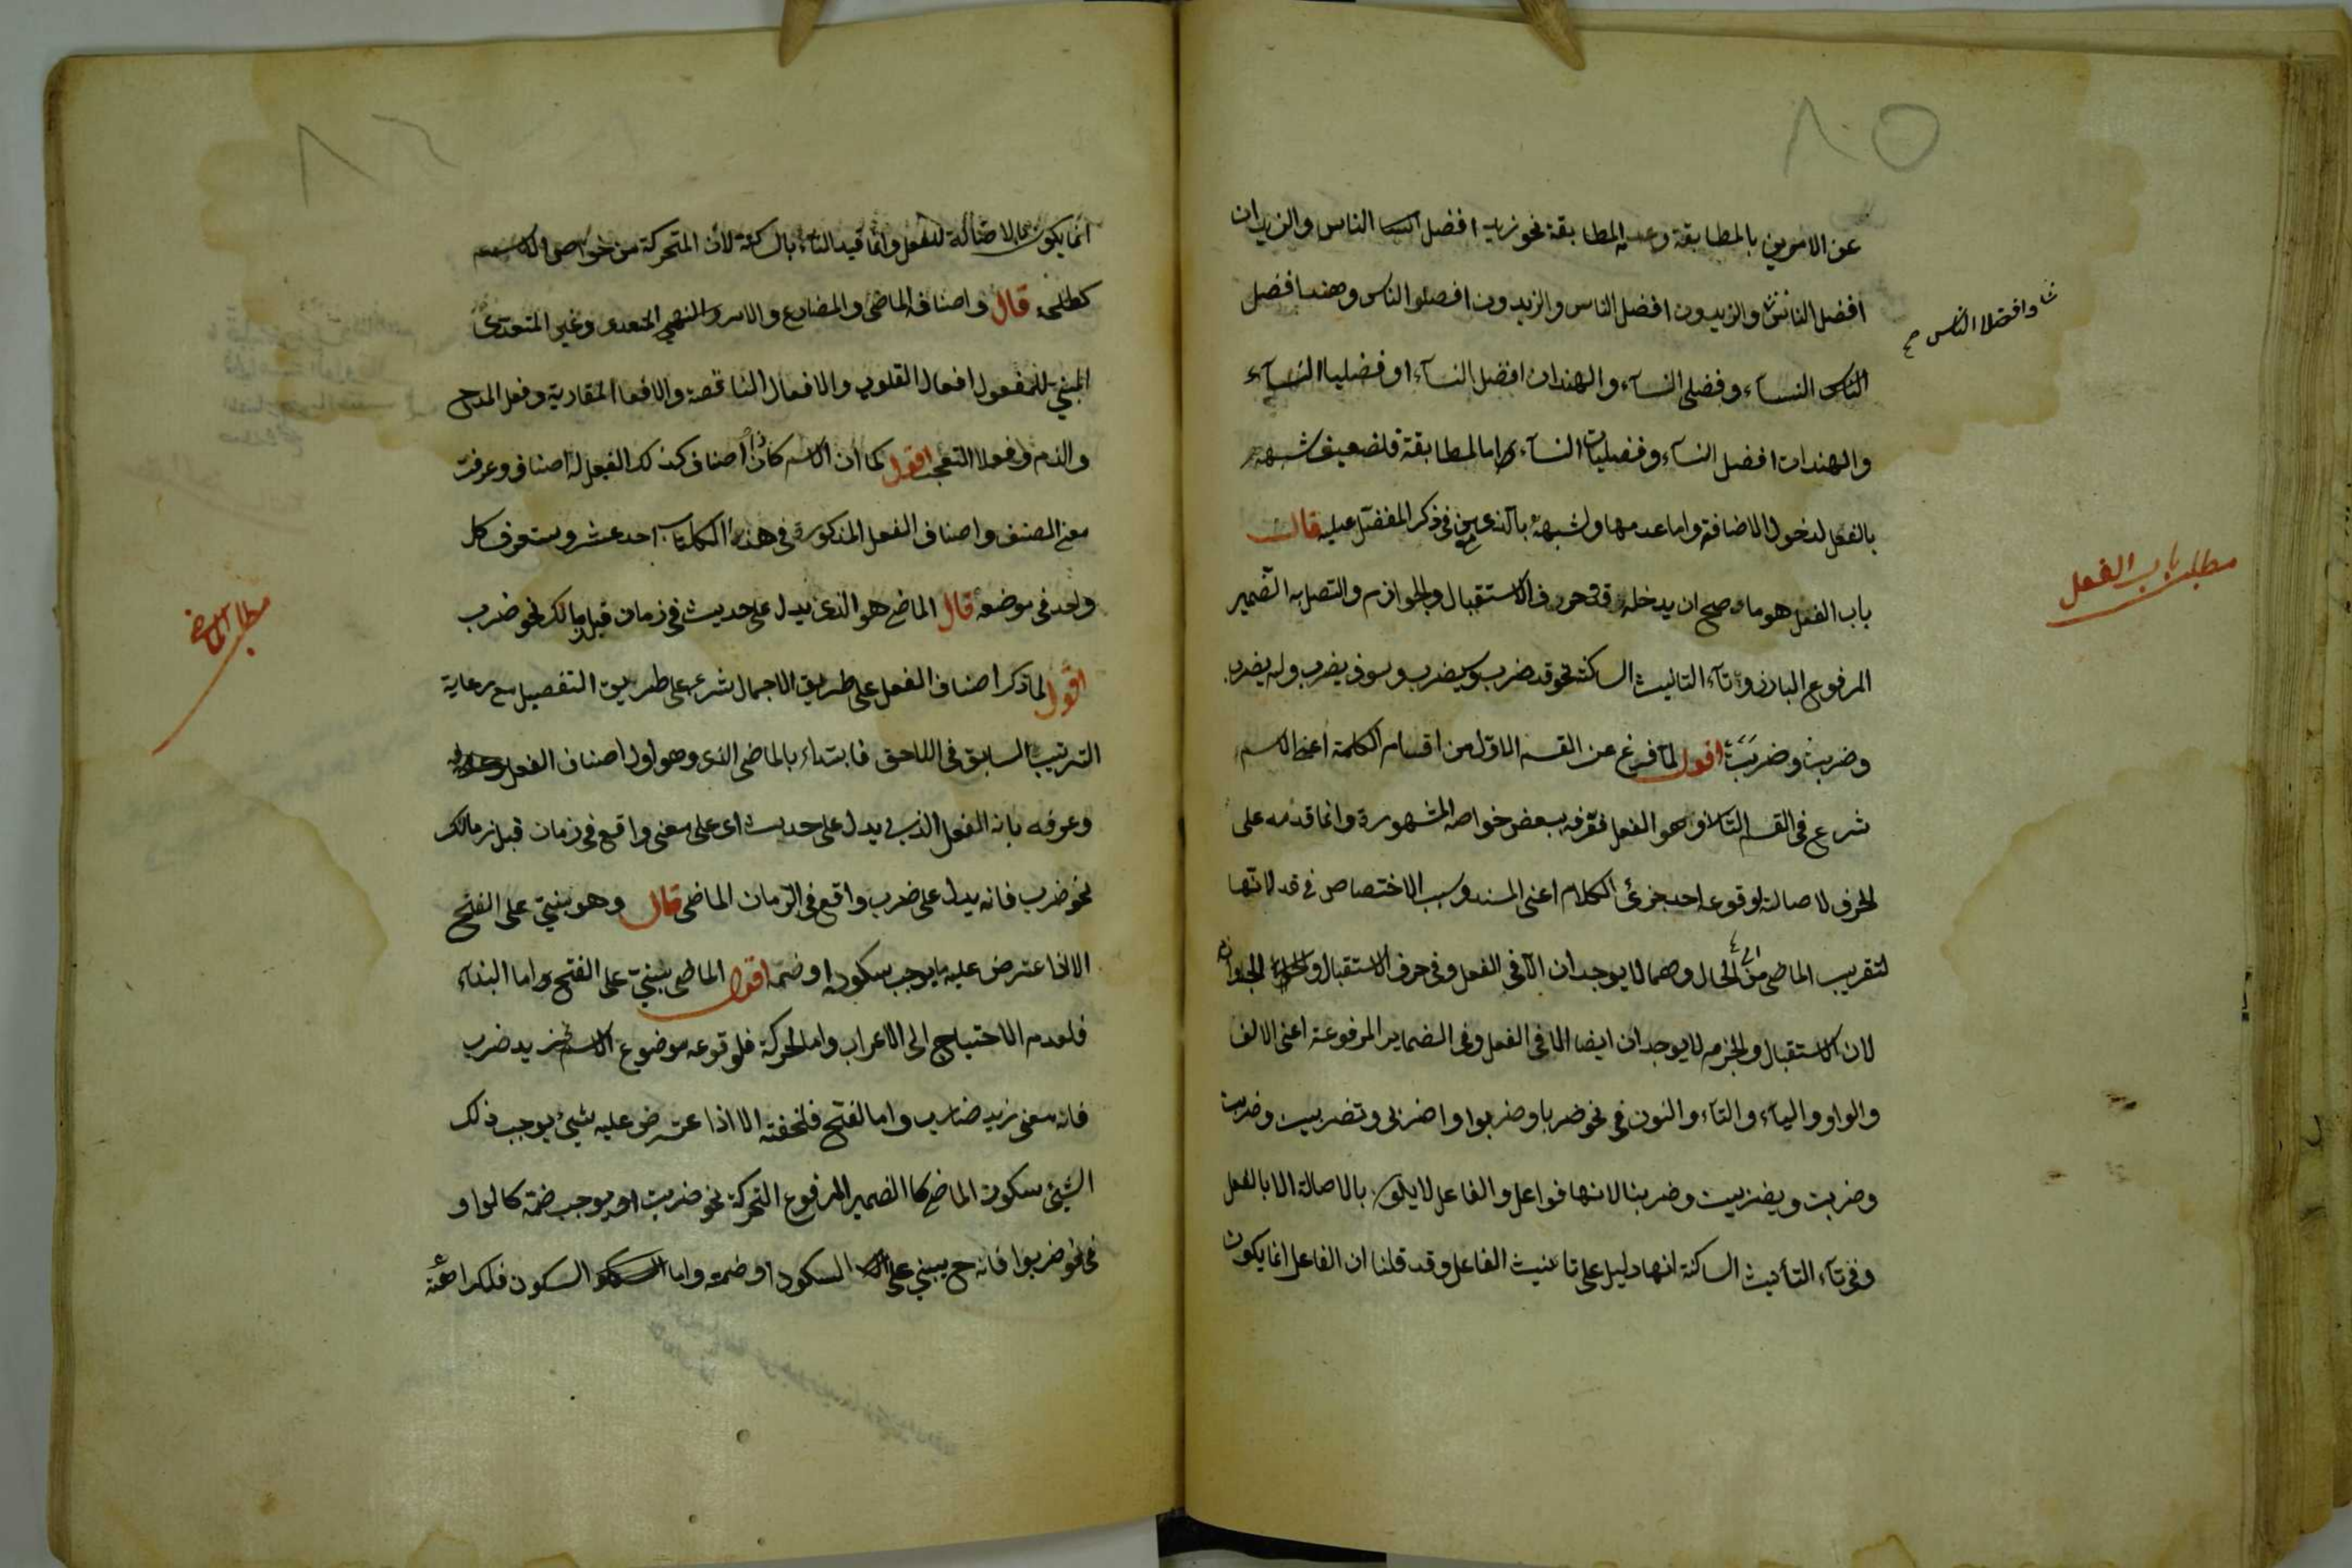 ٨٥
عن الامرين بالمطابقة وعدم المطابقة نحو زيد افضل الناس والزيدان
افضل الناس والزيدون افضل الناس والزيدون افضلوا الناس وهند افضل
وافضلا الناس صح
النساء وفضلى النساء والهندان افضل النساء او فضليا النساء
والهندات افضل النساء وفضليات النساء اما المطابقة فلضعيف شبهه
بالفعل لدخول الاضافة واما عدمها ولشبهه بالذى من فى ذكر المفضل عليه قال
مطلب باب الفعل
باب الفعل هو ما صح ان يدخله قد وحرف الاستقبال والجوازم واتصل به الضمير
المرفوع البارز وتاء التانيث الساكنة نحو قد ضرب وسيضرب وسوف يضرب ولم يضرب
وضربت وضربت اقول لما فرغ عن القسم الاول من اقسام الكلمة اعنى الاسم
شرع فى القسم الثانى وهو الفعل فعرفه ببعض خواصه المشهورة وانما قدمه على
الحرف لاصالته لوقوعه احد جزئى الكلام اعنى المسند وسبب الاختصاص فى قد لانها
لتقريب الماضى من الحال وهما لا يوجدان الا فى الفعل وفى حرف الاستقبال والجوازم
لان الاستقبال والجزم لا يوجدان ايضا الا فى الفعل وفى الضماير المرفوعة اعنى الالف
والواو والياء والتاء والنون فى نحو ضربا وضربوا واضربى وتضربين وضربت
وضربت ويضربن وضربنا لانها فواعل والفاعل لا يكون بالاصالة الا بالفعل
وفى تاء التأنيث الساكنة انها دليل على تانيث الفاعل وقد قلنا ان الفاعل انما يكون
٨٦
انما يكون بالاصالة للفعل وانما قيد التاء بالساكنة لان المتحركة من خواص الاسم
كطلحة قال واصنافه الماضى والمضارع والامر والنهى المتعدى وغير المتعدى
المبنى للمفعول افعال القلوب والافعال الناقصة والافعال المقاربة وفعل المدح
والذم وفعلا التعجب اقول كما ان الاسم كان ذا اصناف كذلك الفعل له اصناف وعرفت
معنى الصنف واصناف الفعل المذكورة فى هذا الكتاب احد عشر وستعرف كل
واحد فى موضعه قال الماضى هو الذى يدل على حديث فى زمان قبل زمانك نحو ضرب
مطلب الماضى
اقول لما ذكر اصناف الفعل على طريق الاجمال شرع على طريق التفصيل مع رعاية
الترتيب السابق فى اللاحق فابتداء بالماضى الذى وهو اول اصناف الفعل
وعرفه بانه الفعل الذى يدل على حديث اى على معنى واقع فى زمان قبل زمانك
نحو ضرب فانه يدل على ضرب واقع فى الزمان الماضى قال وهو مبنى على الفتح
الا اذا عترض عليه ما يوجب سكونه او ضمه اقول الماضى مبنى على الفتح واما البناء
فلعدم الاحتياج الى الاعراب واما الحركة فلوقوعه موضوع الاسم نحو زيد ضرب
فانه معنى زيد ضارب واما الفتح فلخفته الا اذا عترض عليه شيئ يوجب ذلك
الشيئ سكون الماضى كالضمير المرفوع المتحركة نحو ضربت او يوجب ضمة كالواو
فى نحو ضربوا فانه ح يبنى على السكون او ضمة واما السكون فلكراهة